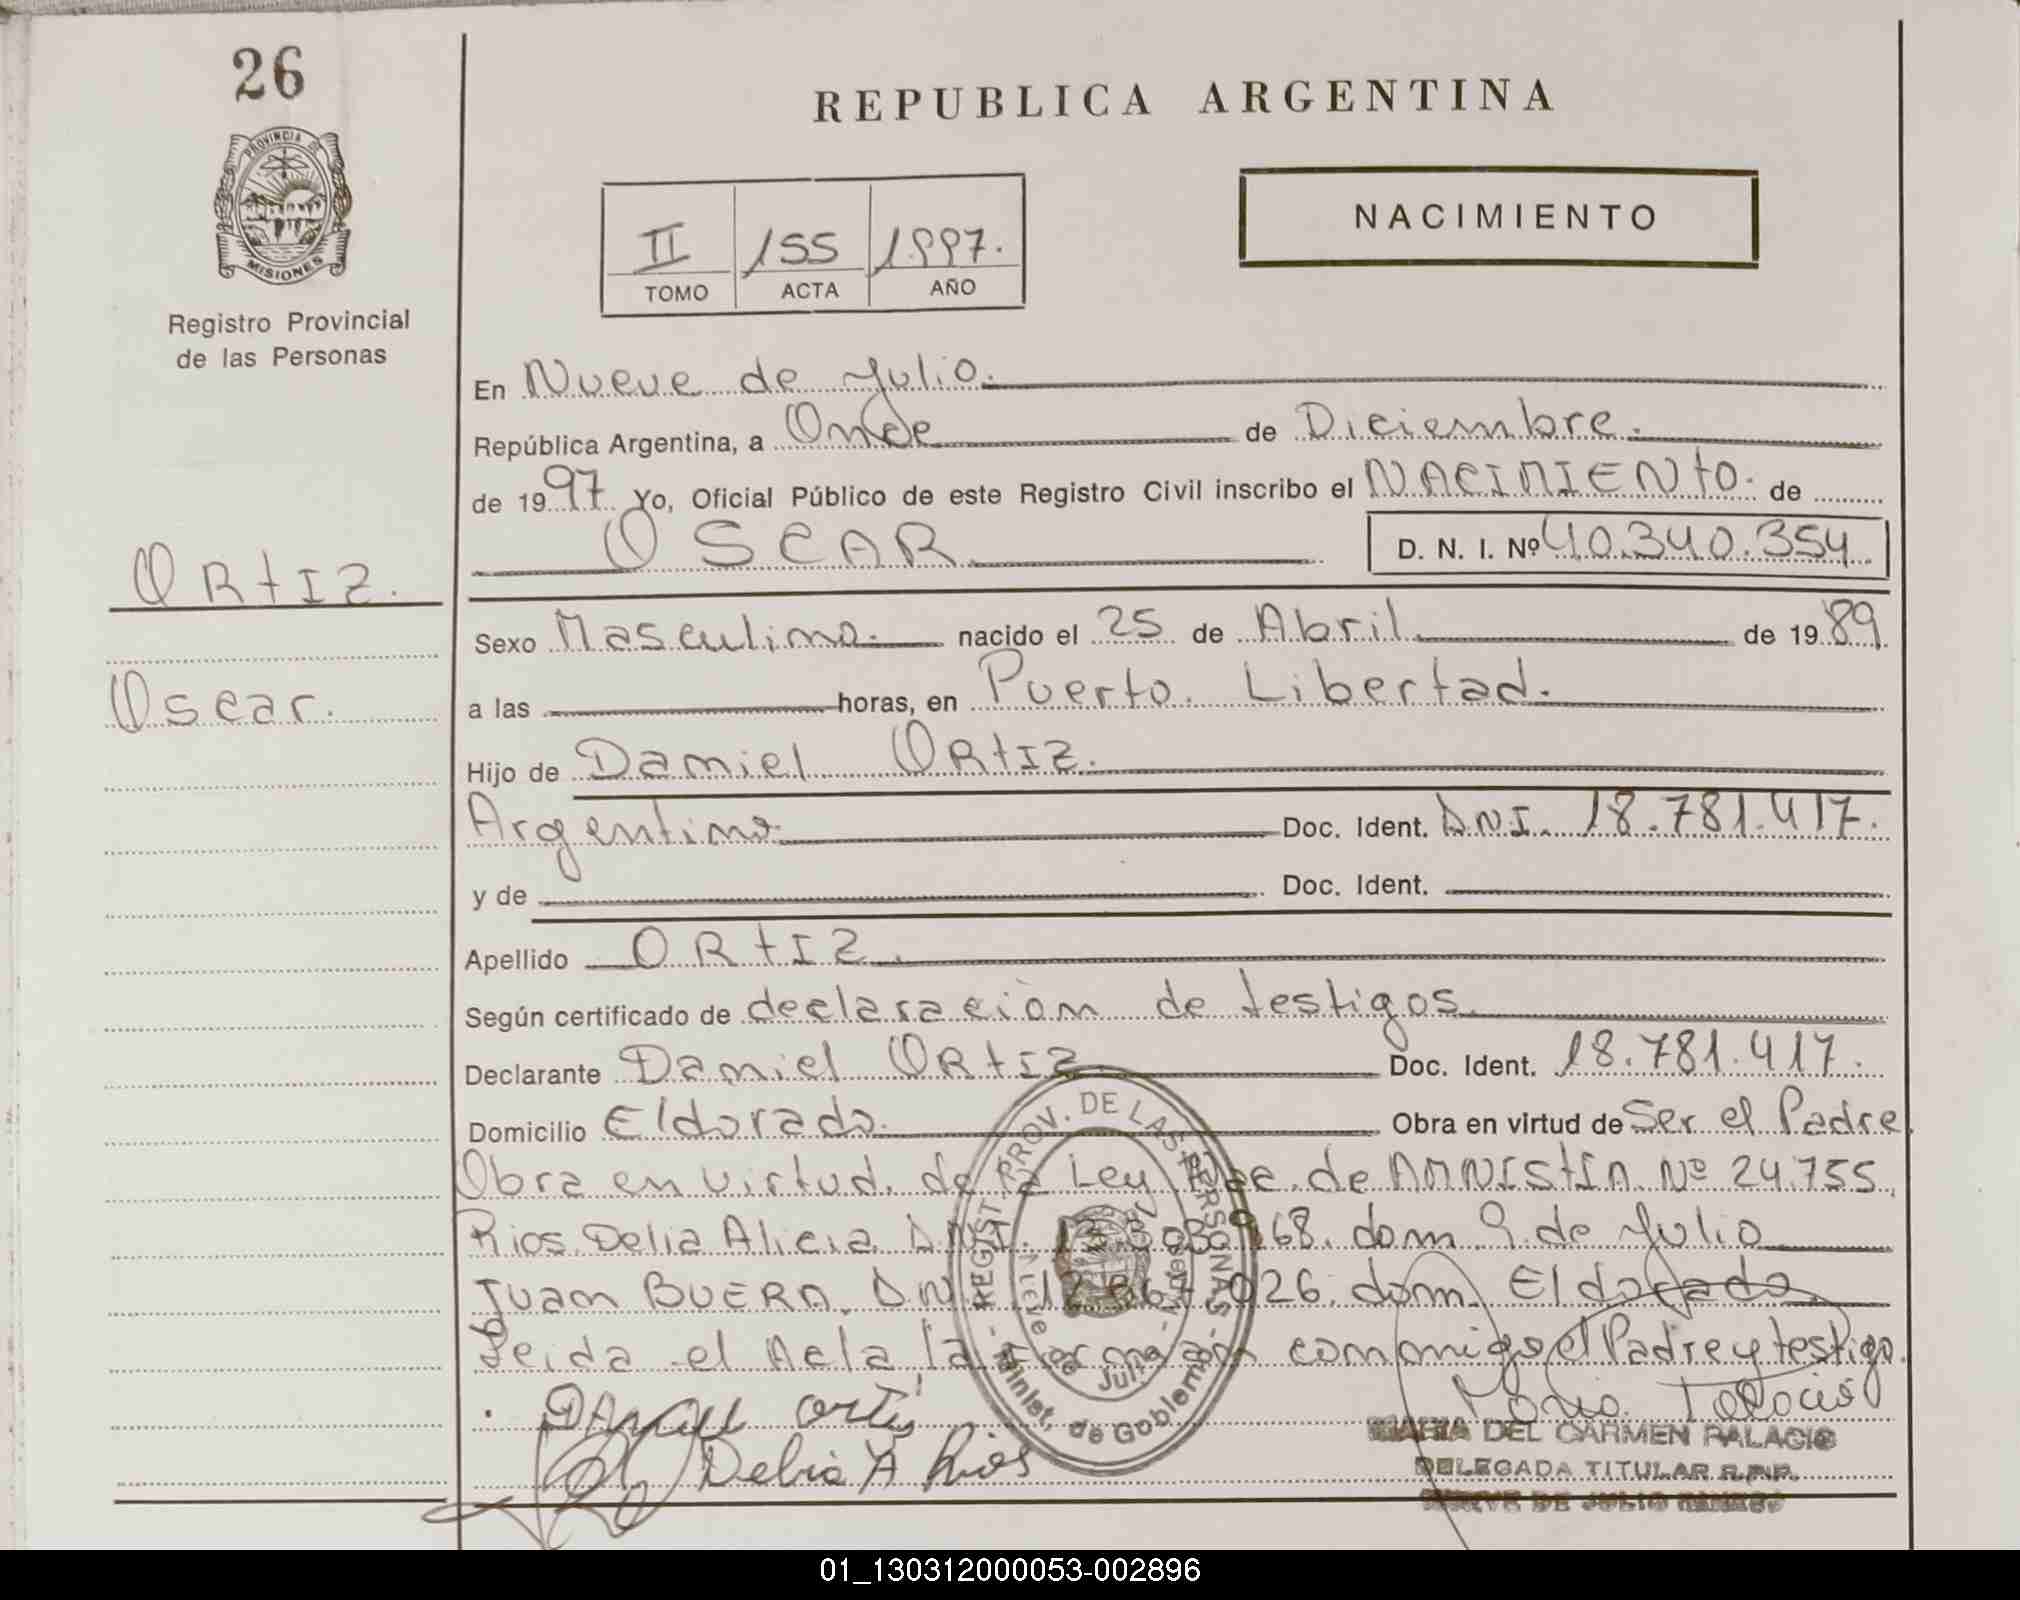 26
PROVINCIA DE
MISIONES
Registro Provincial
de las Personas
Ortiz.
Oscar.
REPUBLICA ARGENTINA
II 155 1997.
TOMO ACTA AÑO
NACIMIENTO
En Nueve de Julio.
República Argentina, a Onde de Diciembre.
de 1997 Yo, Oficial Público de este Registro Civil inscribo el NACIMIENTO. de
OSCAR D. N. I. Nº 40.340.354
Sexo Masculino. nacido el 25 de Abril de 1989
a las horas, en Puerto Libertad.
Hijo de Daniel Ortiz.
Argentino. Doc. Ident. DNI. 18.781.417.
y de Doc. Ident.
Apellido ORTIZ.
Según certificado de declaración de testigos.
Declarante Daniel Ortiz Doc. Ident. 18.781.417.
Domicilio Eldorado. Obra en virtud de Ser el Padre
Obra en virtud. de la Ley de AMNISTIA. Nº 24.755
Rios Delia Alicia DNI. dom 9 de Julio
Juan BUERA. DNI 026. dom. Eldorado
Leida el Acta la firman conmigo el Padre y testigo.
Daniel Ortis
Delia A Rios
Maria Palacio
MARIA DEL CARMEN PALACIO
DELEGADA TITULAR R.P.P.
NUEVE DE JULIO
REGIST. PROV. DE LAS PERSONAS
Minist. de Gobierno
Nueve de Julio
01_130312000053-002896